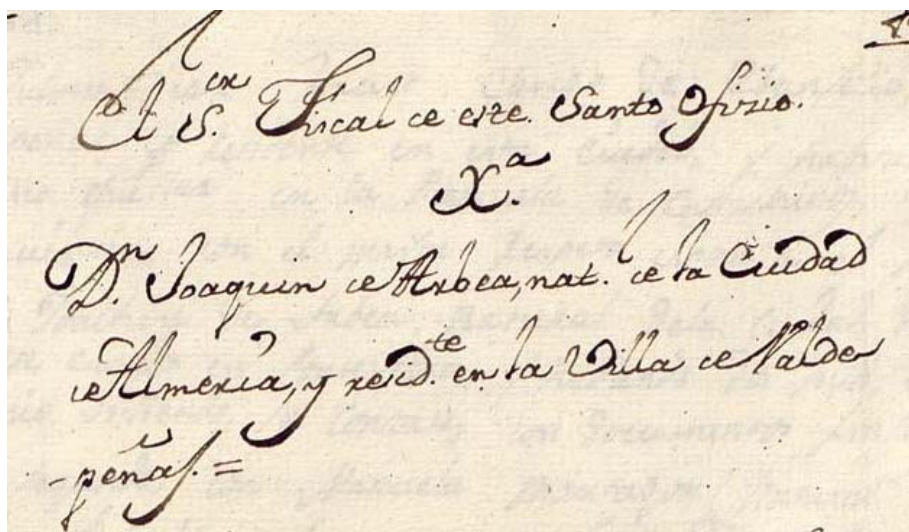 El S.or Fiscal de este Santo Ofizio.
X.a
D.n Joaquin de Arbea, nat. de la Ciudad
de Almeria, y resid.te en la Villa de Valde
-peñas. =